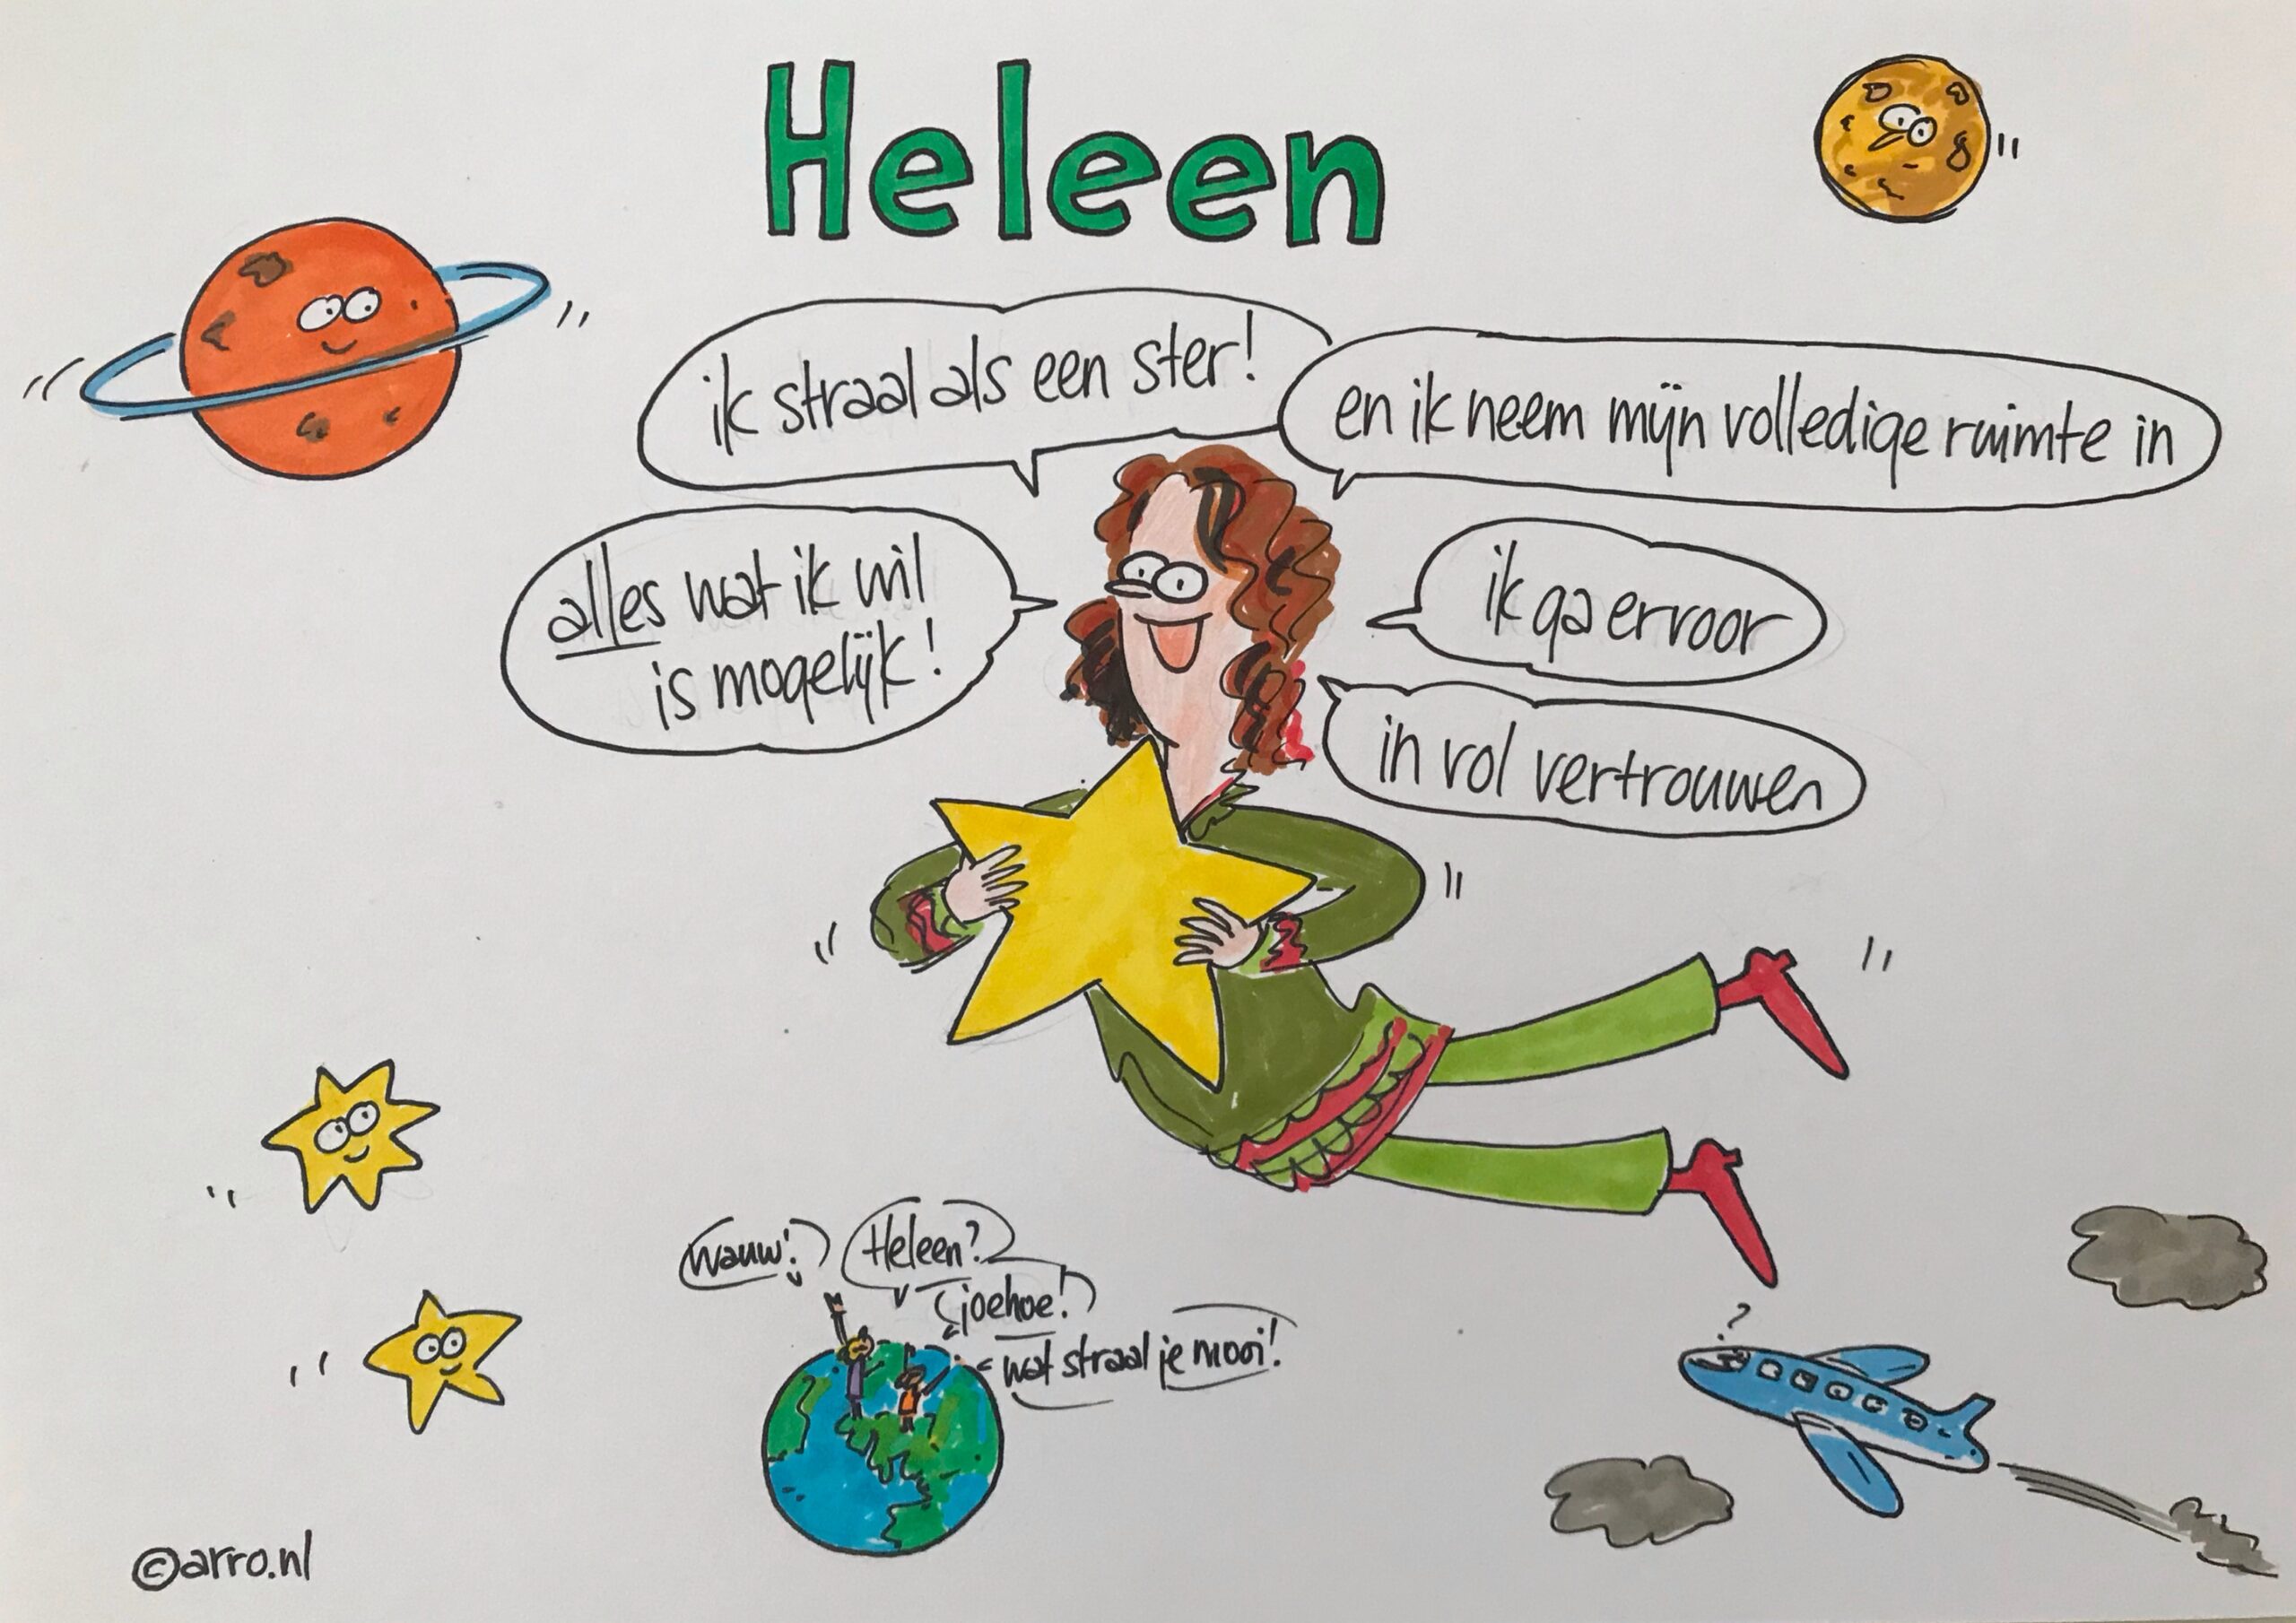 Heleen
ik straal als een ster!
en ik neem mijn volledige ruimte in
alles wat ik wil
is mogelijk!
ik ga ervoor
in vol vertrouwen
wauw!
Heleen?
joehoe!
wat straal je mooi!
?
©arro.nl